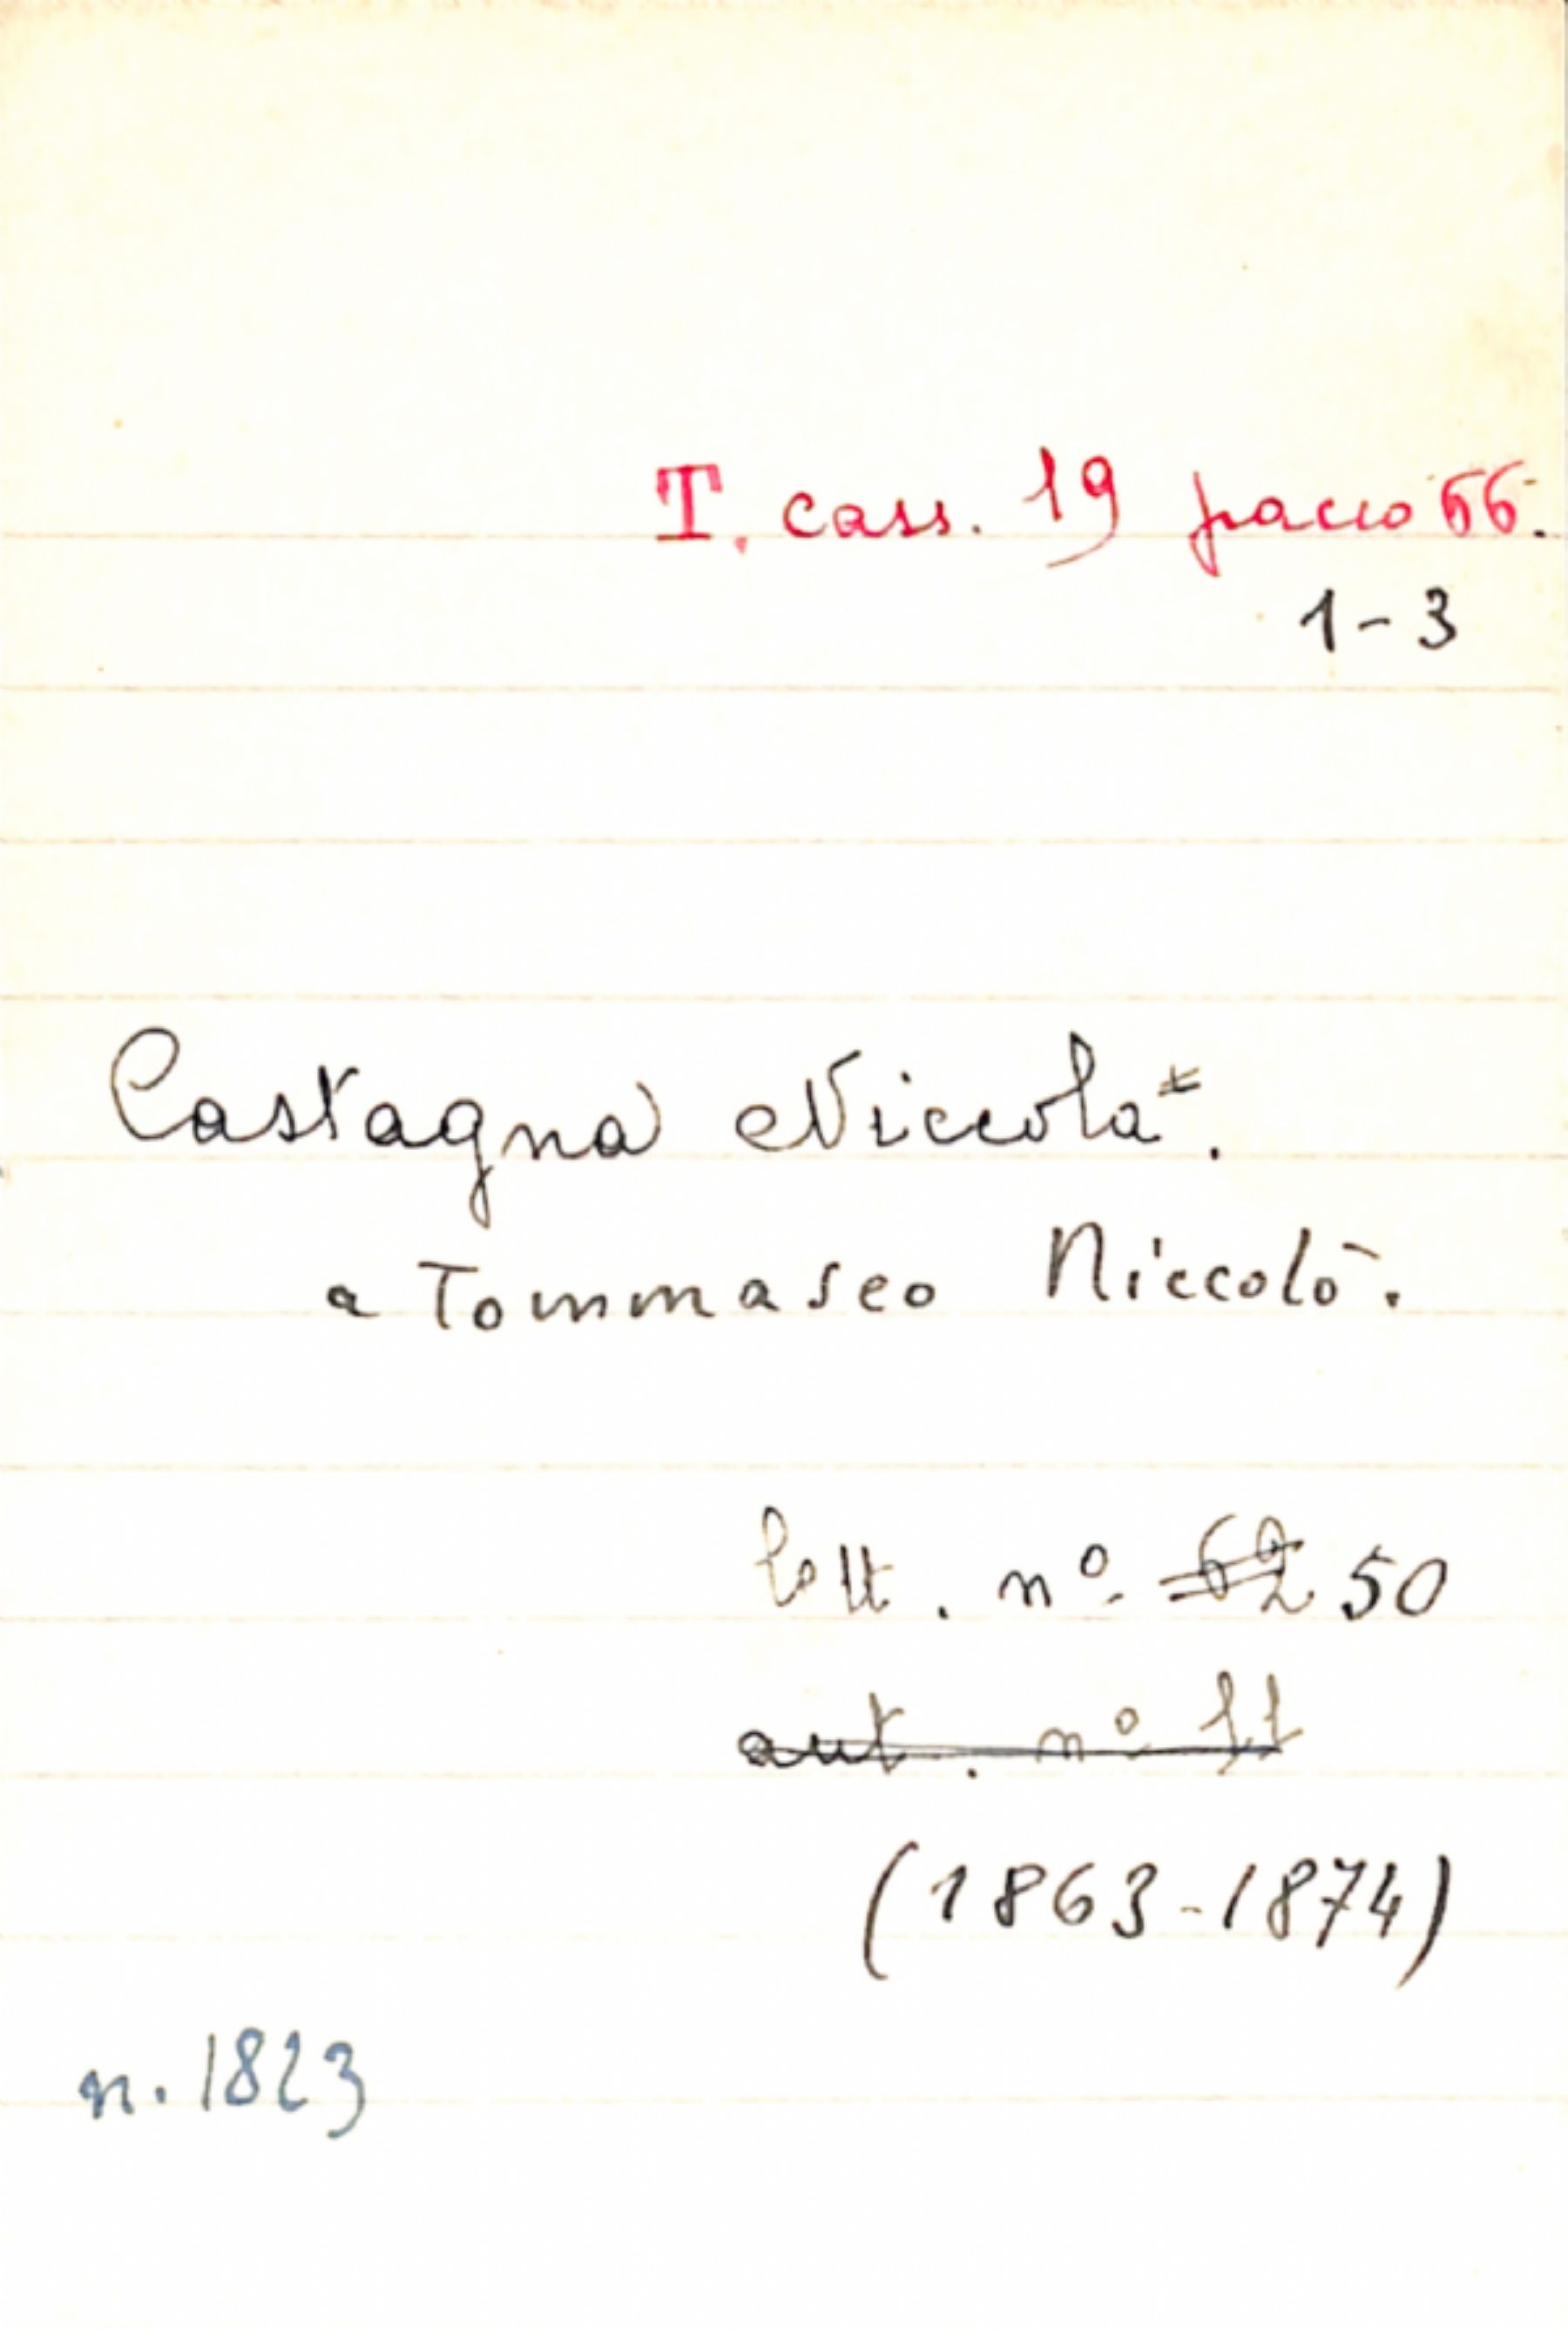 T. cass. 19 pacco 66.
1-3
Castagna Niccola.
a Tommaseo Niccolò.
lett. nº 62 50
aut. nº 11
(1863-1874)
n. 1823